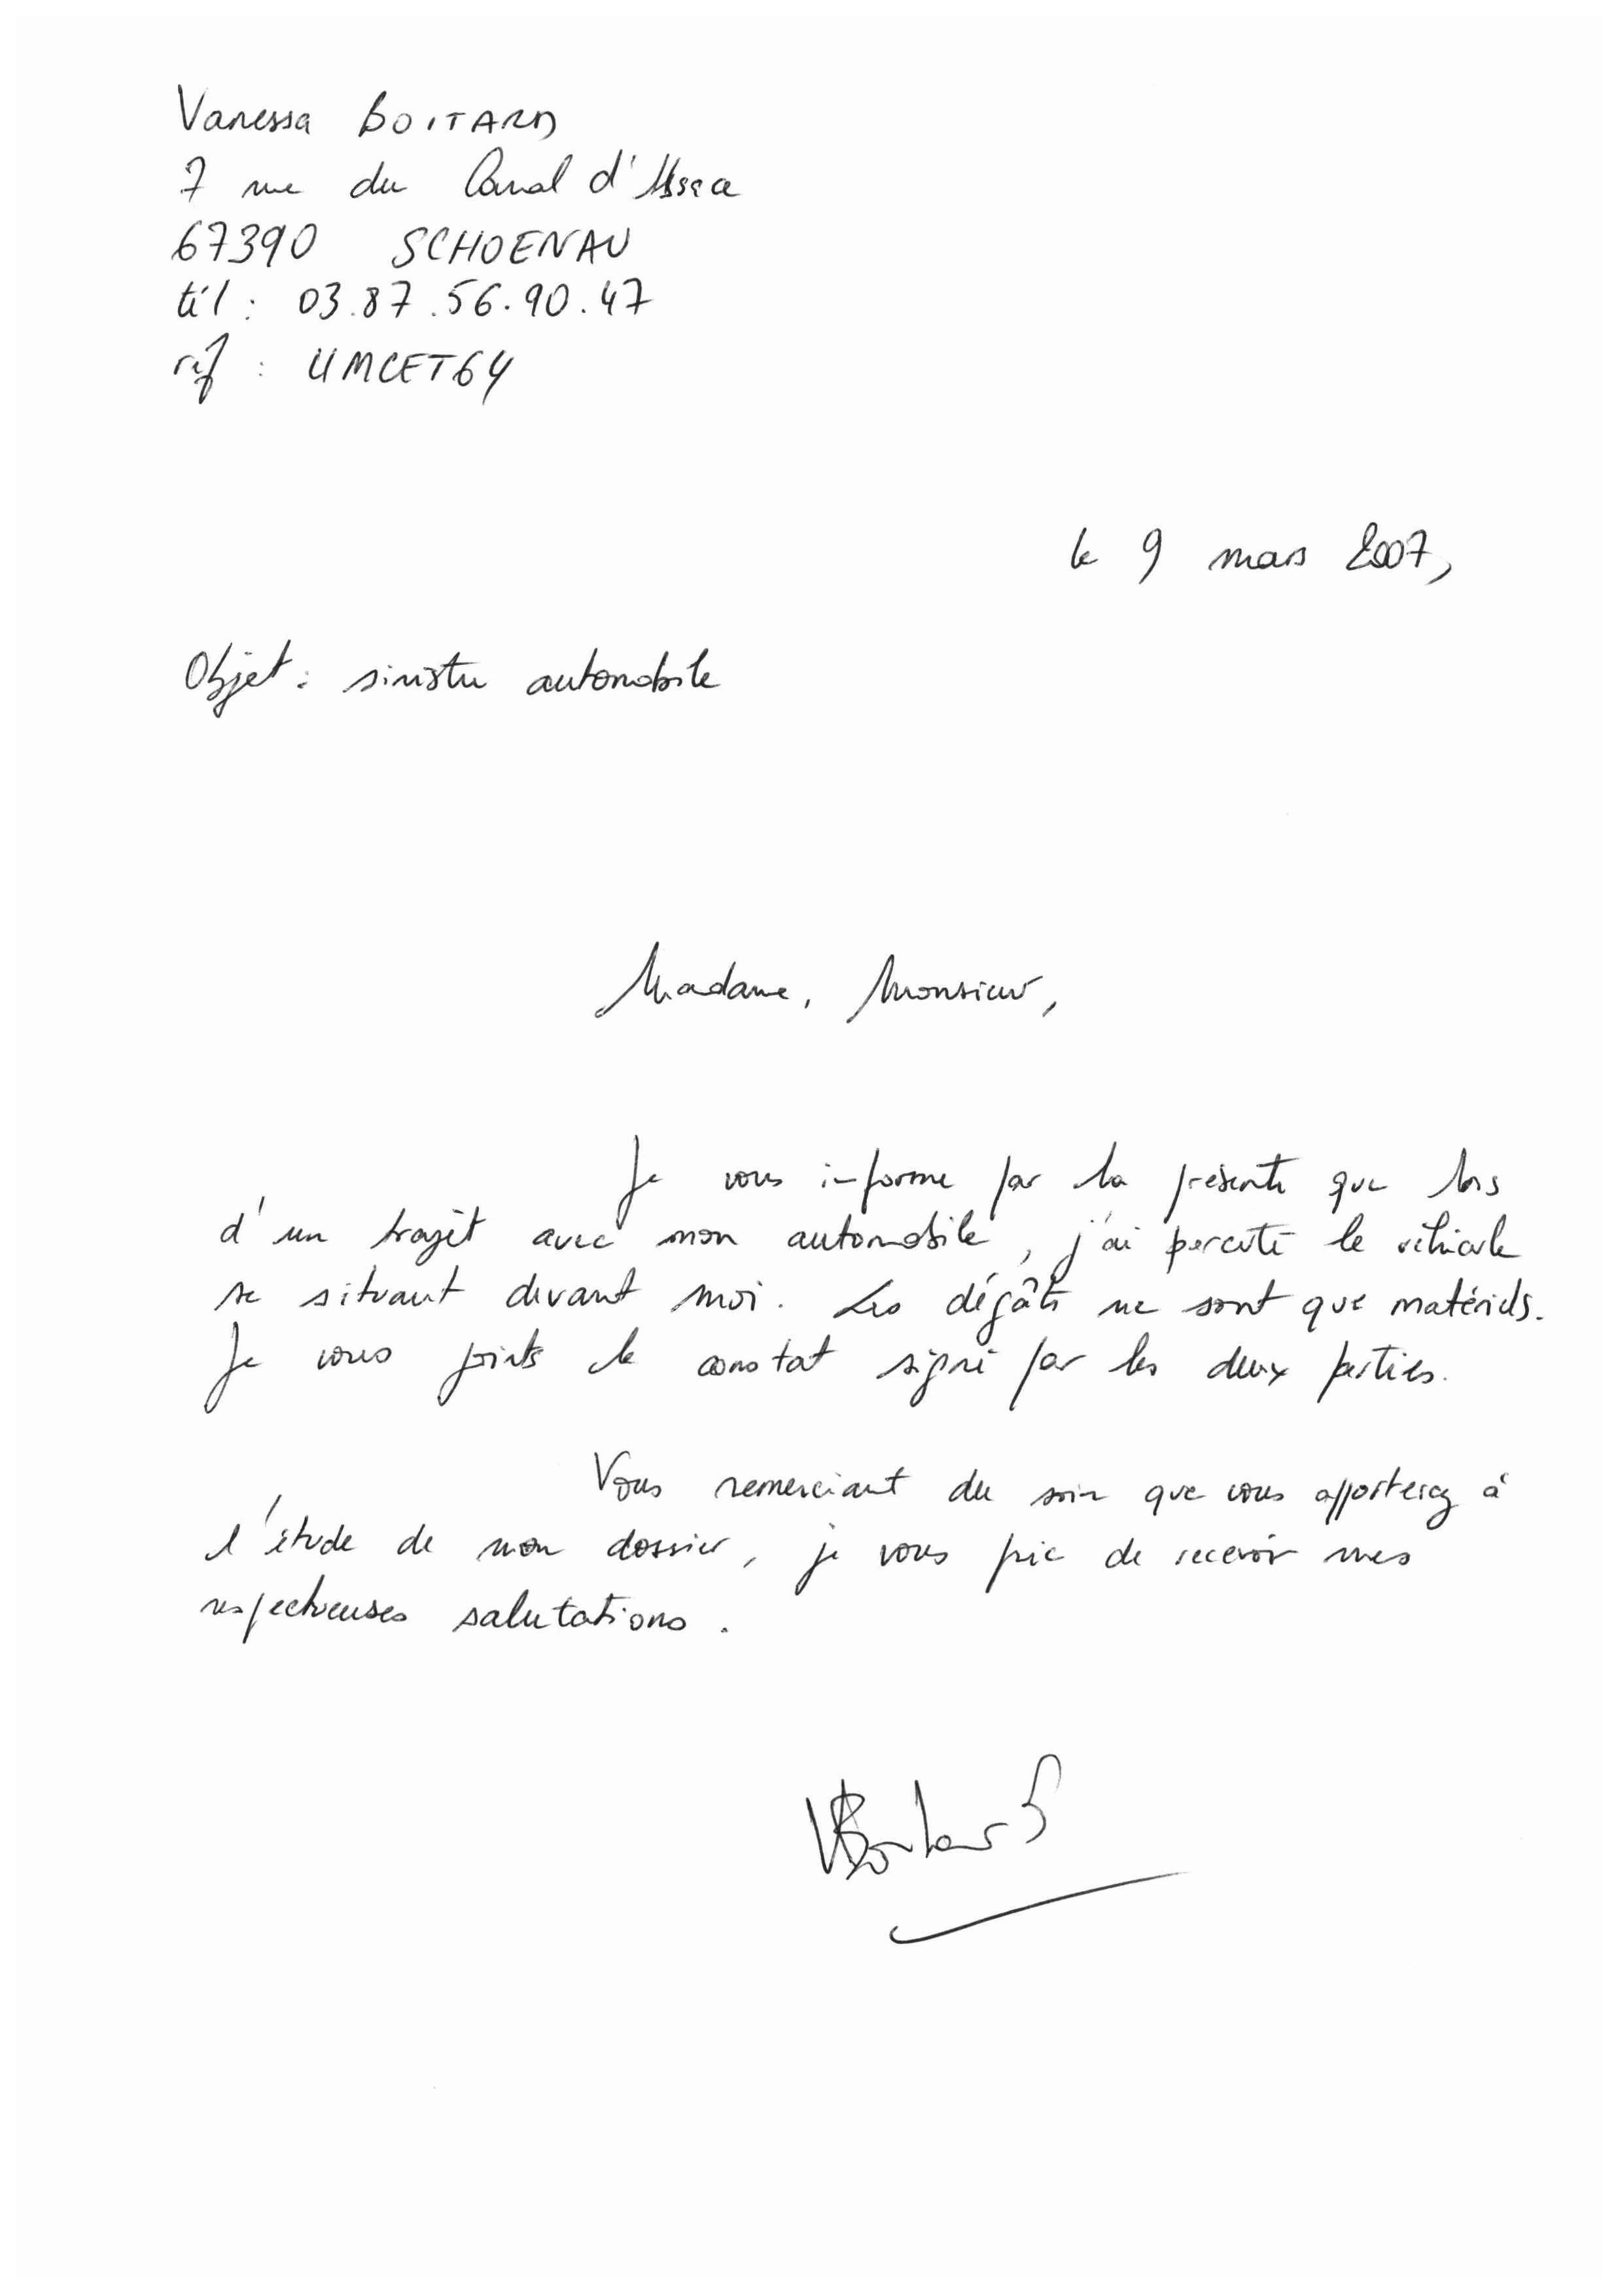 Vanessa BOITARD
7 rue du Canal d'Alsace
67390 SCHOENAU
tél : 03.87.56.90.47
réf : UMCET64
le 9 mars 2007,
Objet : sinistre automobile
Madame, Monsieur,
Je vous informe par la présente que lors
d'un trajet avec mon automobile, j'ai percuté le véhicule
se situant devant moi. Les dégâts ne sont que matériels.
Je vous joints le constat signé par les deux parties.
Vous remerciant du soin que vous apporterez à
l'étude de mon dossier, je vous prie de recevoir mes
respectueuses salutations.
VBoitard